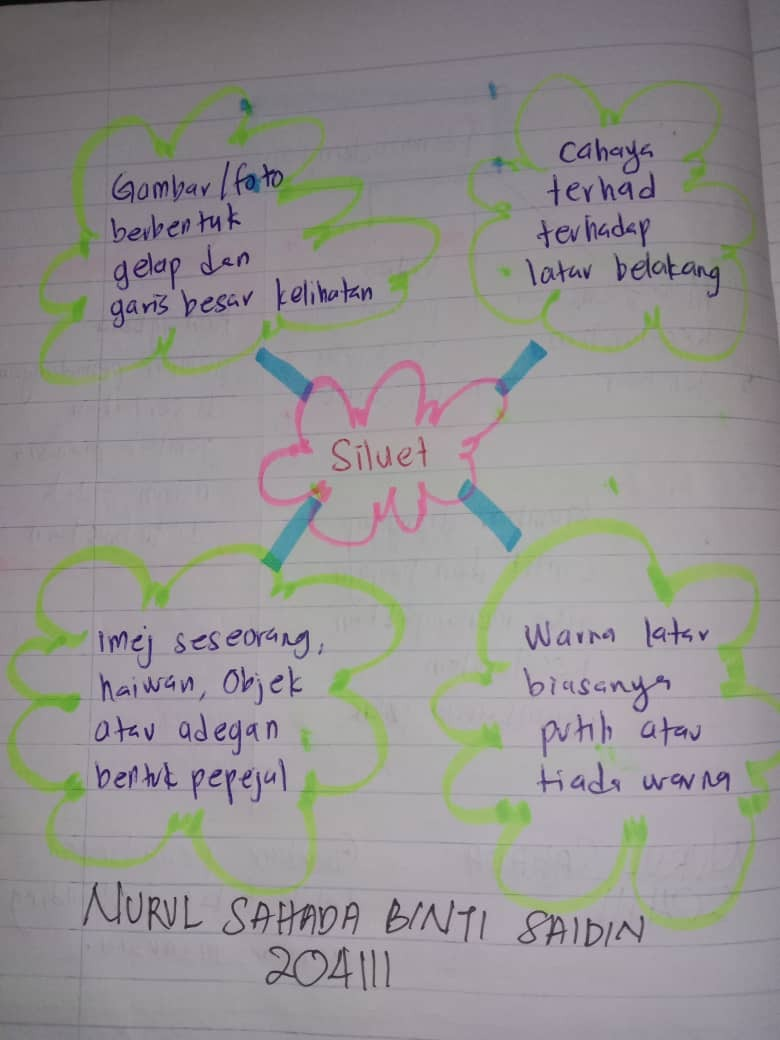 Gambar/foto
berbentuk
gelap dan
garis besar kelihatan
Cahaya
terhad
terhadap
latar belakang
Siluet
imej seseorang,
haiwan, Objek
atau adegan
bentuk pepejal
Warna latar
biasanya
putih atau
tiada warna
NURUL SAHADA BINTI SAIDIN
204111